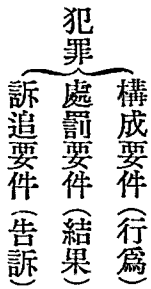 犯罪
構成要件(行爲)
處罰要件(結果)
訴追要件(告訴)